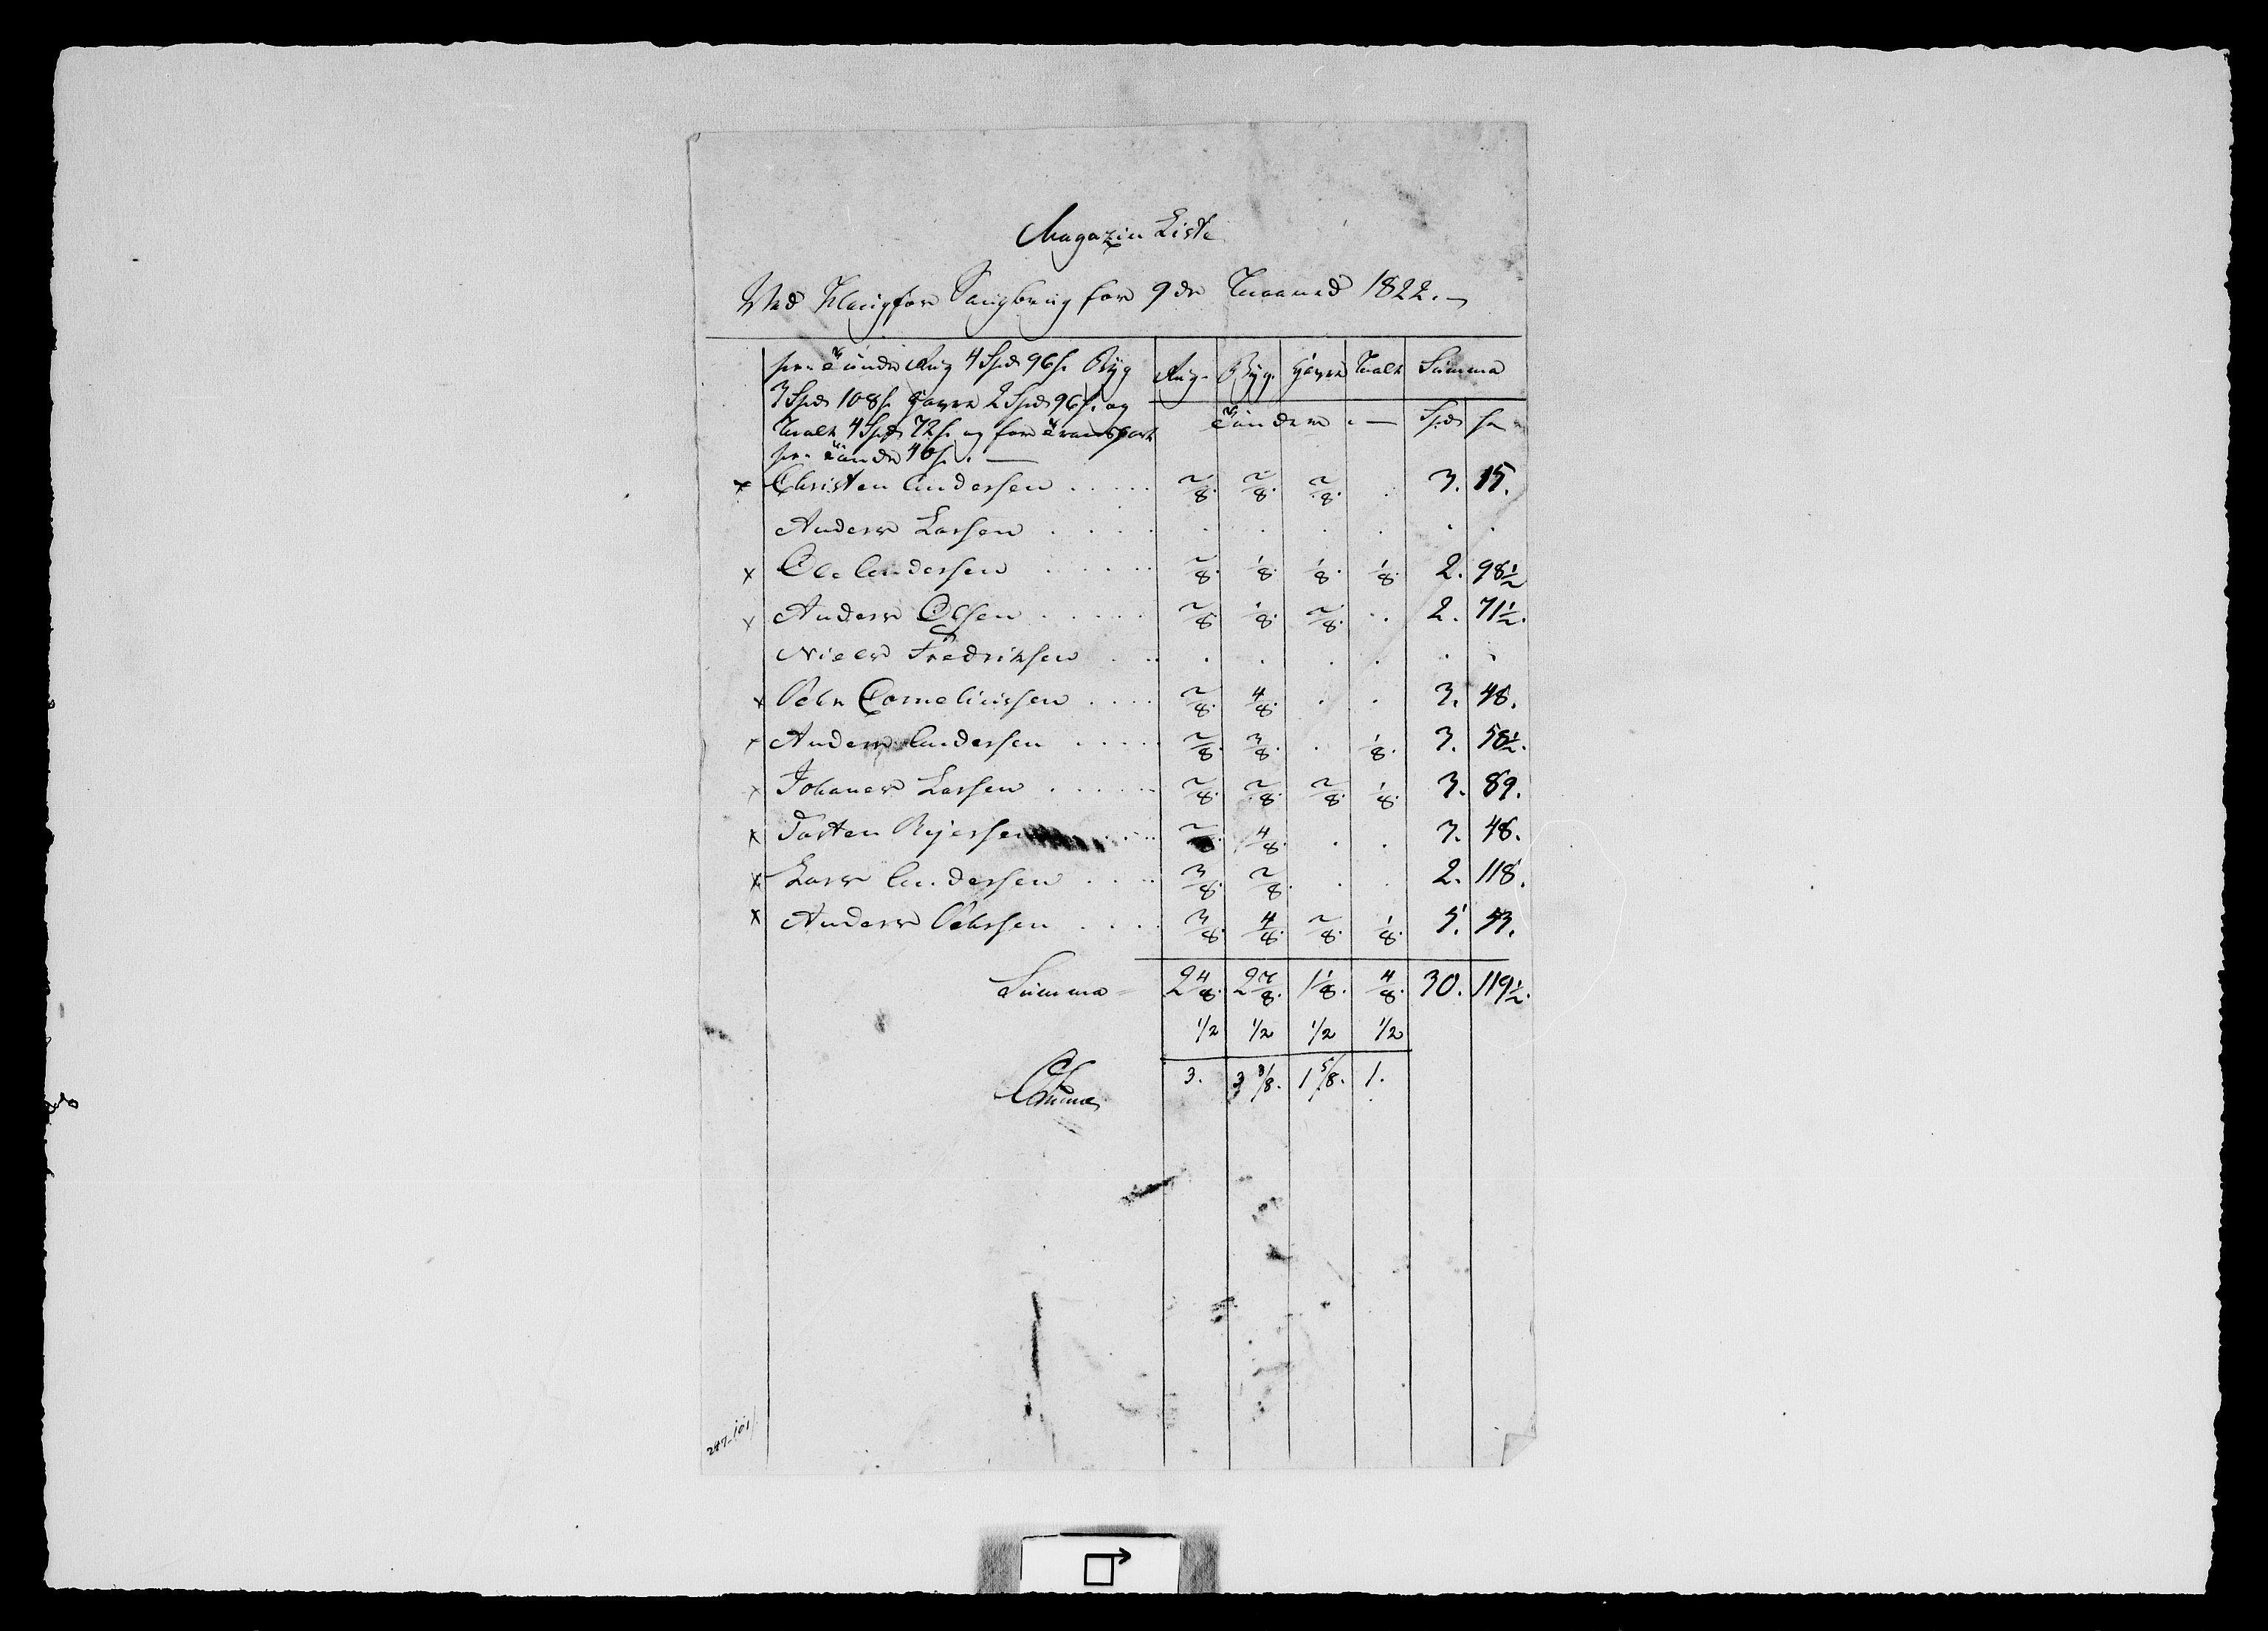 Magazin Liste
Ved Klangfos Saugbrug for 9de Maaned 1822.
pr. Tünde Rug 4 Spd 96 s. Byg
3 Spd 108 s. Havre 2 Spd 96 s. og
Malt 4 Spd 72 s. og for Transport
pr. Tünde 40 s. —
Rug. Byg. Havre Malt Summa
Tünder. — Spd s
x Christen Andersen . . . . . 2/8. 2/8. 2/8. . 3. 15.
Anders Larsen . . . . . . . . . .
x Ole Andersen . . . . . 2/8. 1/8. 1/8. 1/8. 2. 98 1/2
x Anders Olsen . . . . . 2/8 1/8. 2/8. . 2. 71 1/2.
Niels Fredriksen . . . . . . . . .
x Peder Corneliussen . . . . 2/8. 4/8. . . 3. 48.
x Anders Andersen . . . . . 2/8. 3/8. . 1/8. 3. 58 1/2.
x Johanes Larsen . . . . . 2/8. 2/8. 2/8. 1/8. 3. 89.
x Tosten Byersen . . . 2/8 4/8. . . 3. 48.
x Lars Andersen . . . . 3/8. 2/8. . . 2. 118.
x Anders Pedersen . . . . 3/8. 4/8. 2/8. 1/8. 5. 53.
Summa 2 4/8. 2 7/8. 1 1/8. 4/8. 30. 119 1/2.
1/2 1/2 1/2 1/2
3. 3 3/8. 1 5/8. 1.
247-101